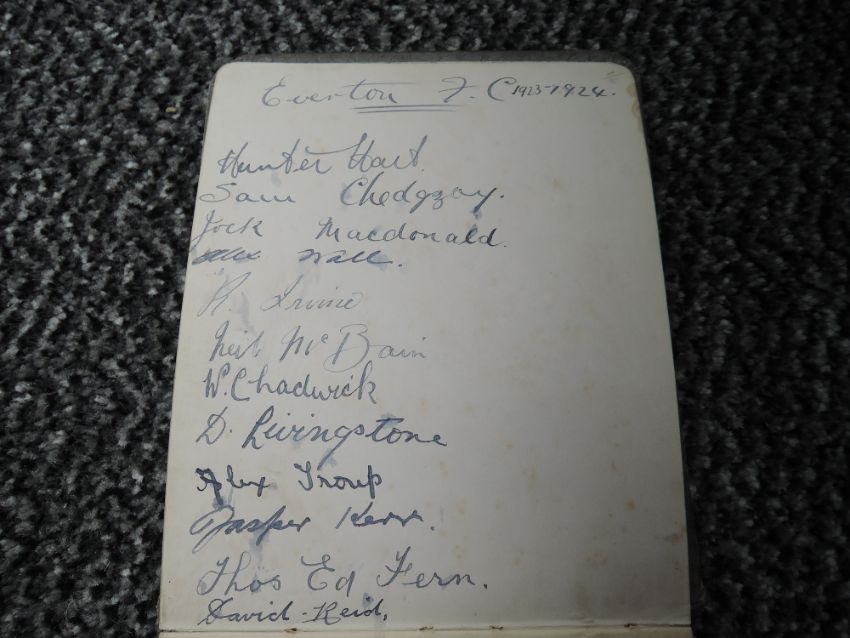 Everton F.C 1923-1924.
Hunter Hart.
Sam Chedgzoy.
Jock Macdonald.
Alex Wall.
R. Irvine
Neil McBain
W. Chadwick
D. Livingstone
Alex Troup
Jasper Kerr.
Thos Ed Fern.
David Reid.